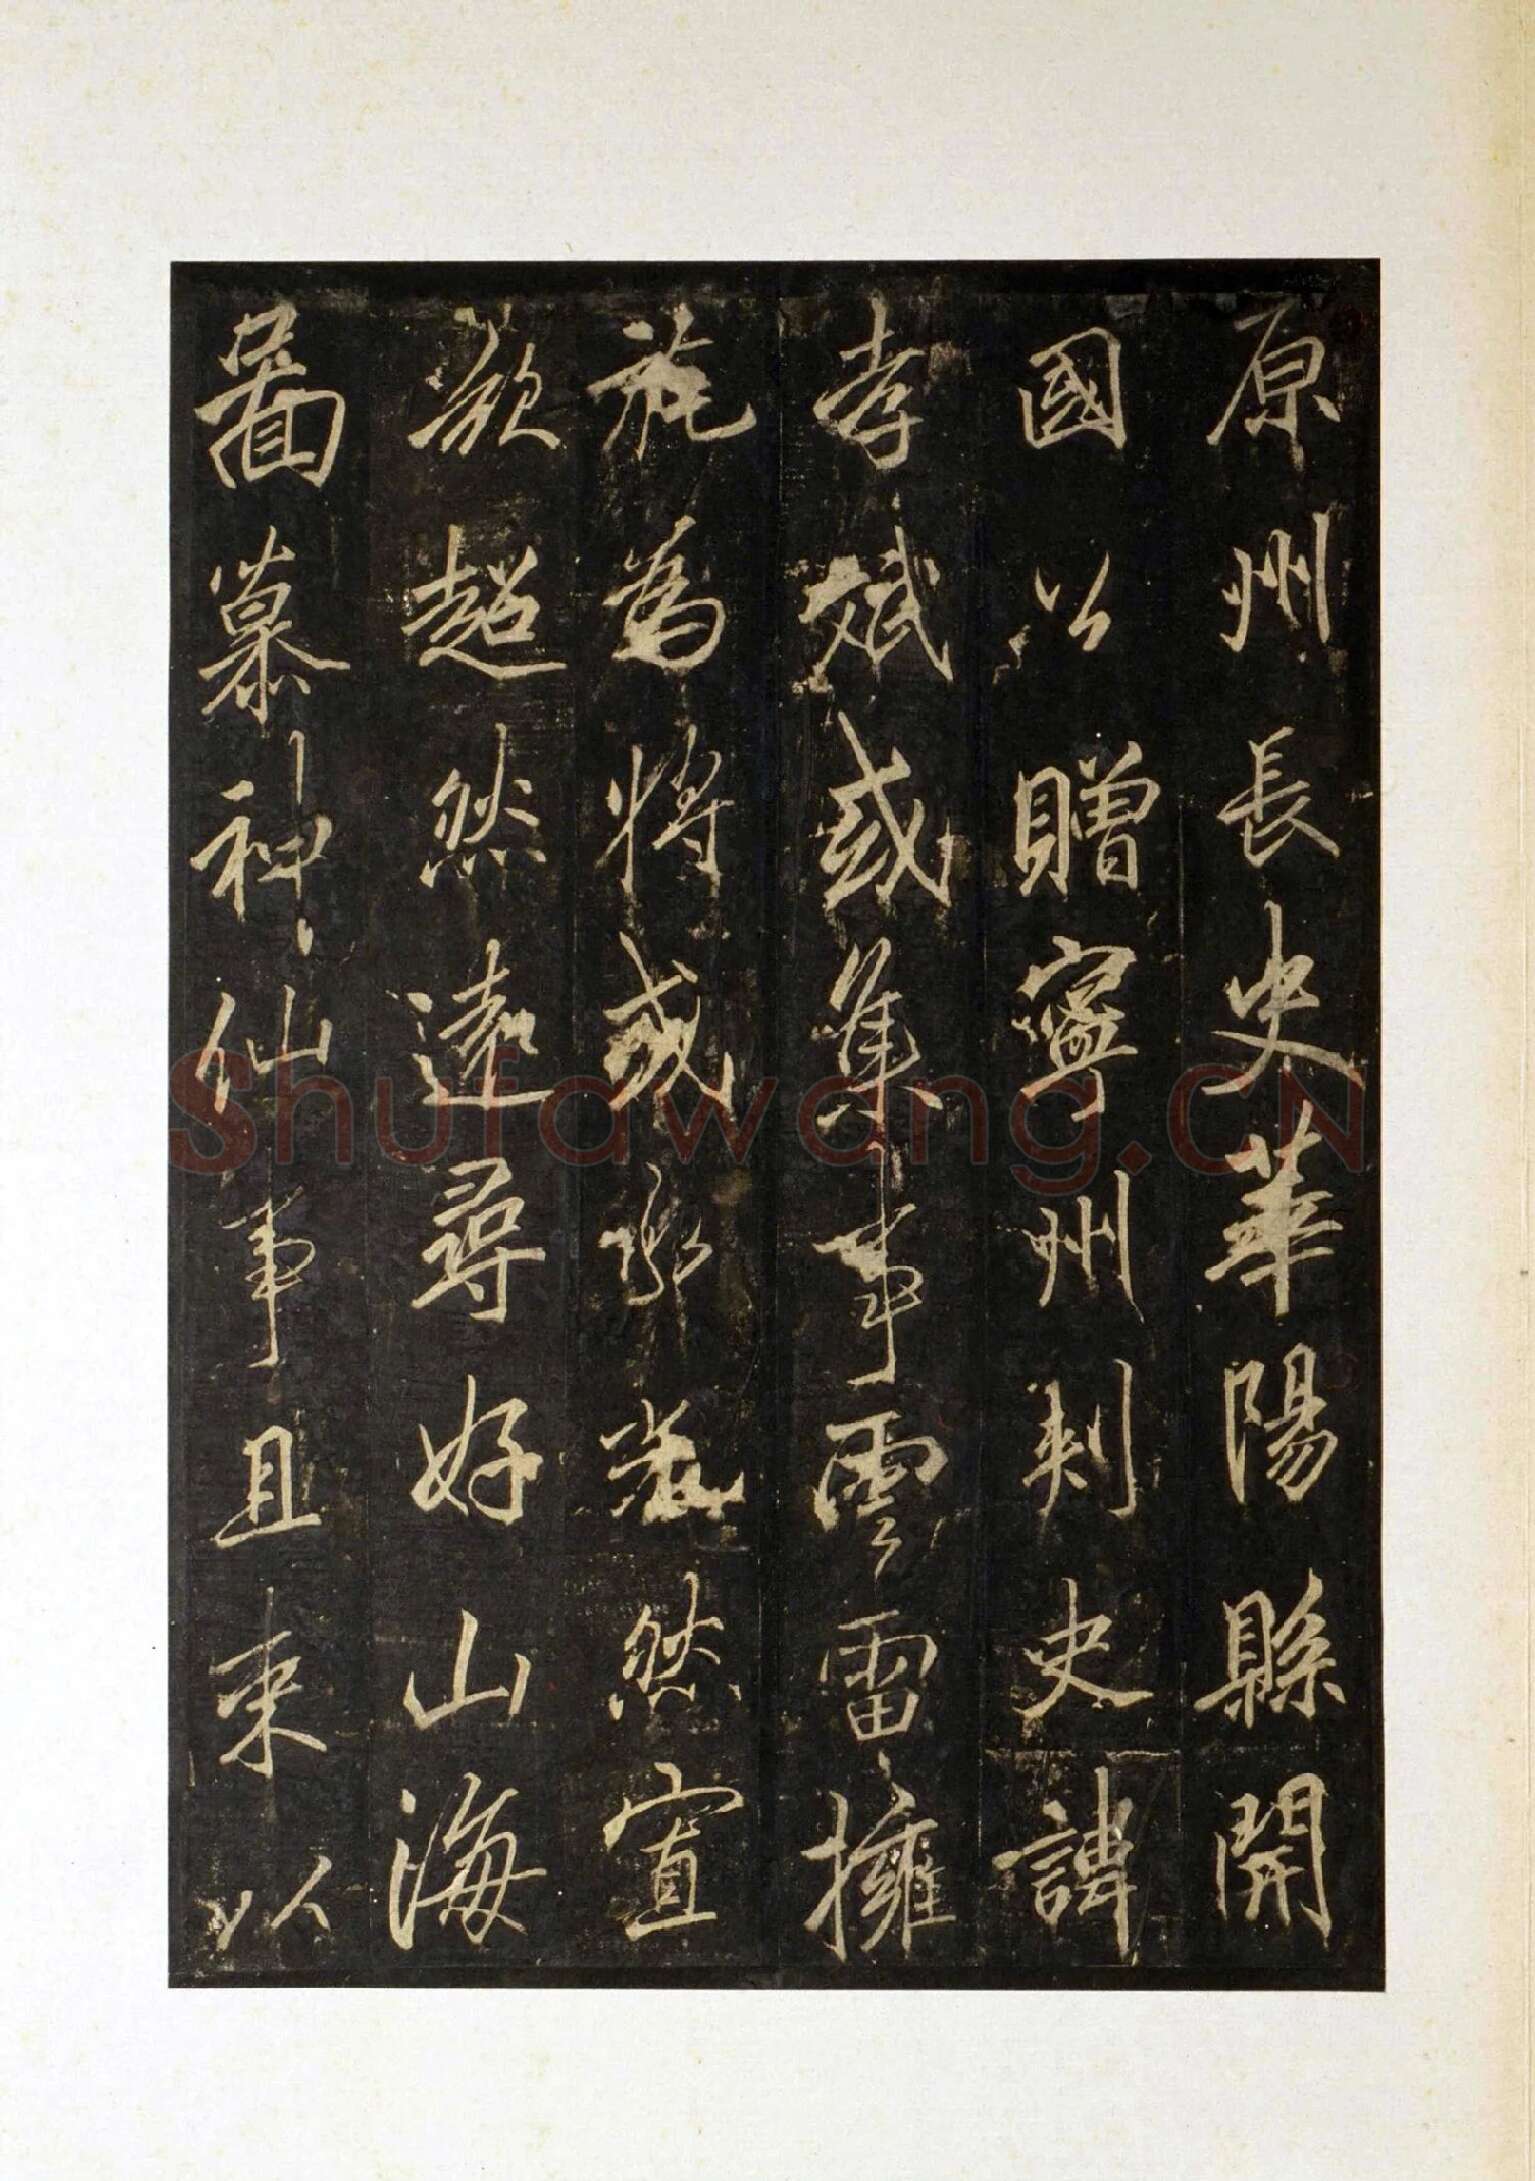 原州長史華陽縣開
國公贈寧州刺史諱
孝斌或集事雲雷擁
旄為將或耿光然宣
歘超然遠尋好山海
圖慕神仙事且束以
Shufawang.CN